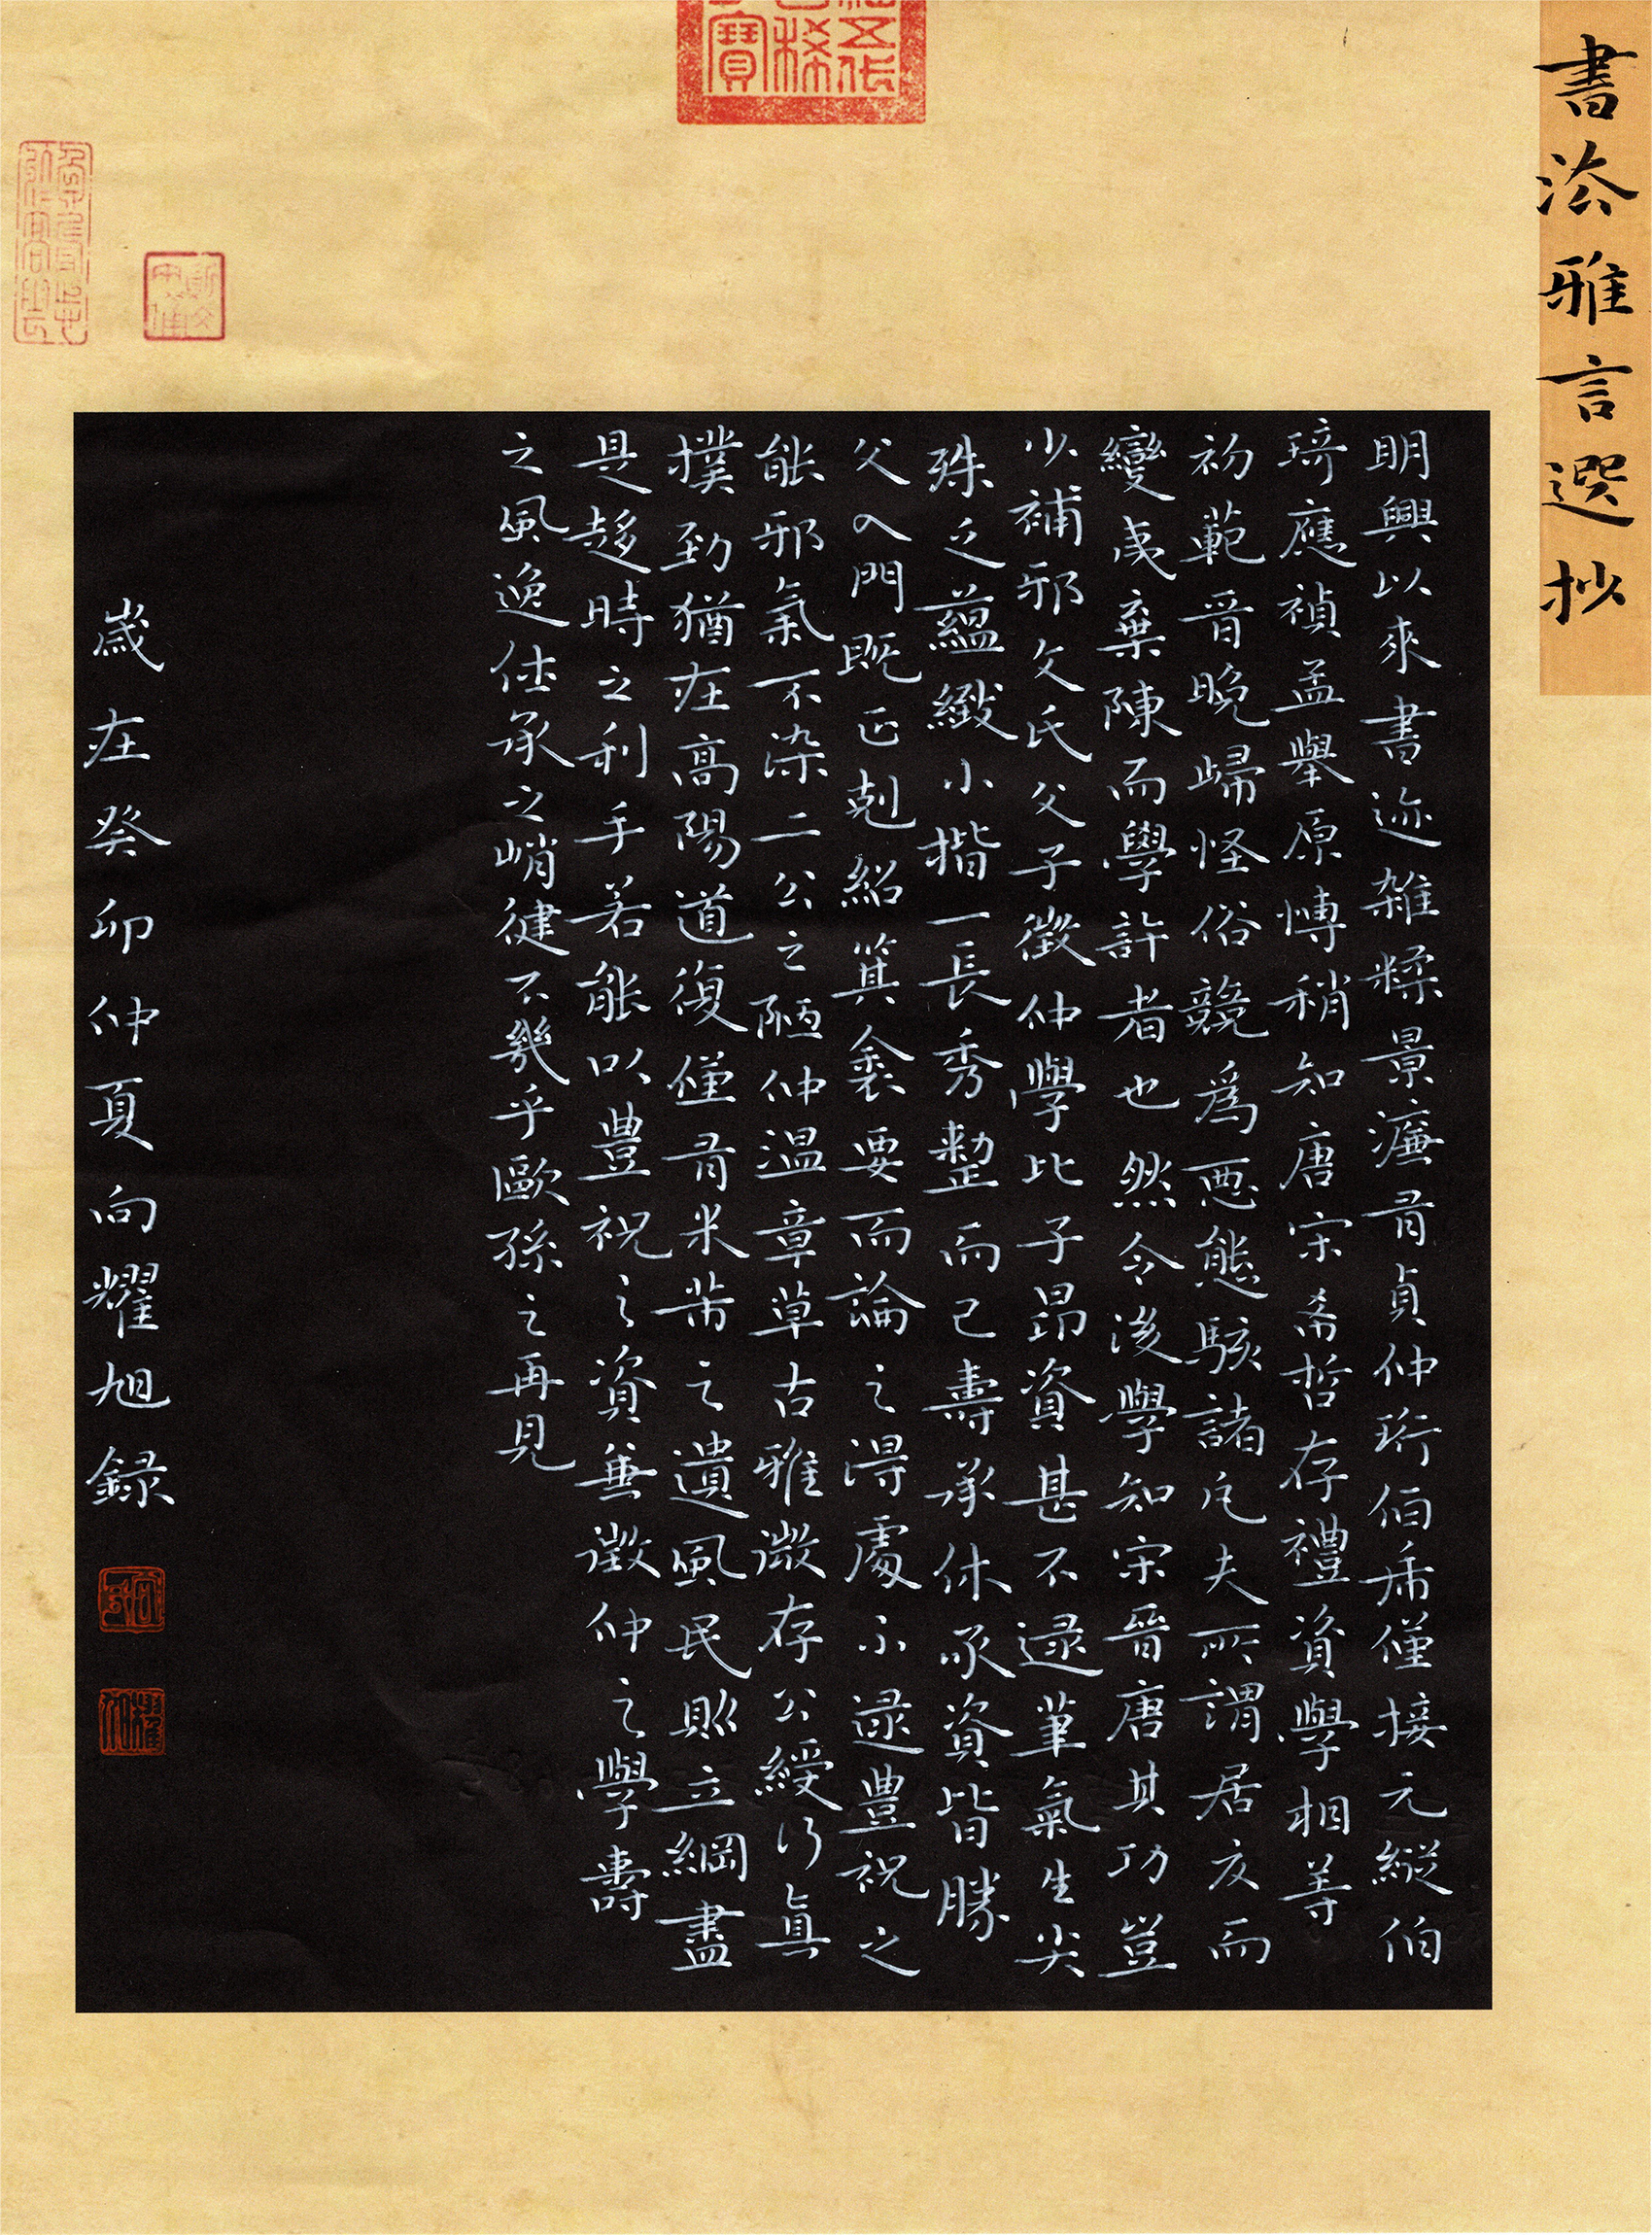 書法雅言選抄
明興以來書迹雜糅景濂有貞仲珩伯希僅接元縱伯
琦應禎孟舉原博稍知唐宋希哲存禮資學相等
初範晉晚歸怪俗競爲惡態駭諸凡夫所謂居夏而
變夷棄陳而學許者也然令後學知宋晉唐其功豈
少補邪文氏父子徵仲學比子昂資甚不逮筆氣生尖
殊乏蘊緻小楷一長秀整而已壽承休承資皆勝
父入門既正克紹箕裘要而論之得處不逮豐祝之
能邪氣不染二公之陋仲温章草古雅微存公綬行真
樸勁猶在高陽道復僅有米芾之遺風民則立綱盡
是趍時之利手若能以豐祝之資兼徵仲之學壽
之風逸休承之峭健不幾乎歐孫之再見
歲在癸卯仲夏向耀旭録